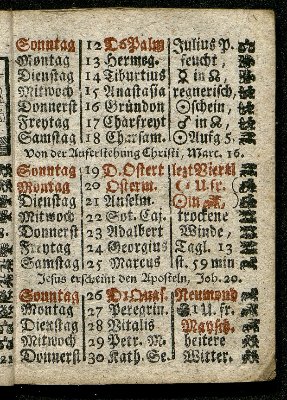 Sonntag 12 D6Palm Julius P.
Montag 13 Hermog. feucht,
Dienstag 14 Tiburtius ☿ in ☊,
Mitwoch 15 Anastasia regnerisch,
Donnerst 16 Gründon ☉schein,
Freytag 17 Charfreyt ♂ in ☊,
Samstag 18 Charsam. ☉Aufg 5,
Von der Auferstehung Christi, Marc. 16.
Sonntag 19 D. Ostert letzt Viertl
Montag 20 Osterm. Ufr.
Dienstag 21 Anselm. ☉in
Mitwoch 22 Sot. Caj. trockene
Donnerst 23 Adalbert Winde,
Freytag 24 Georgius Tagl. 13
Samstag 25 Marcus st. 59 min
Jesus erscheint den Aposteln, Joh. 20.
Sonntag 26 D1Quas. Neumond
Montag 27 Peregrin. 1 U. fr.
Dienstag 28 Vitalis
Mitwoch 29 Petr. M. heitere
Donnerst 30 Kath. Se. Witter.